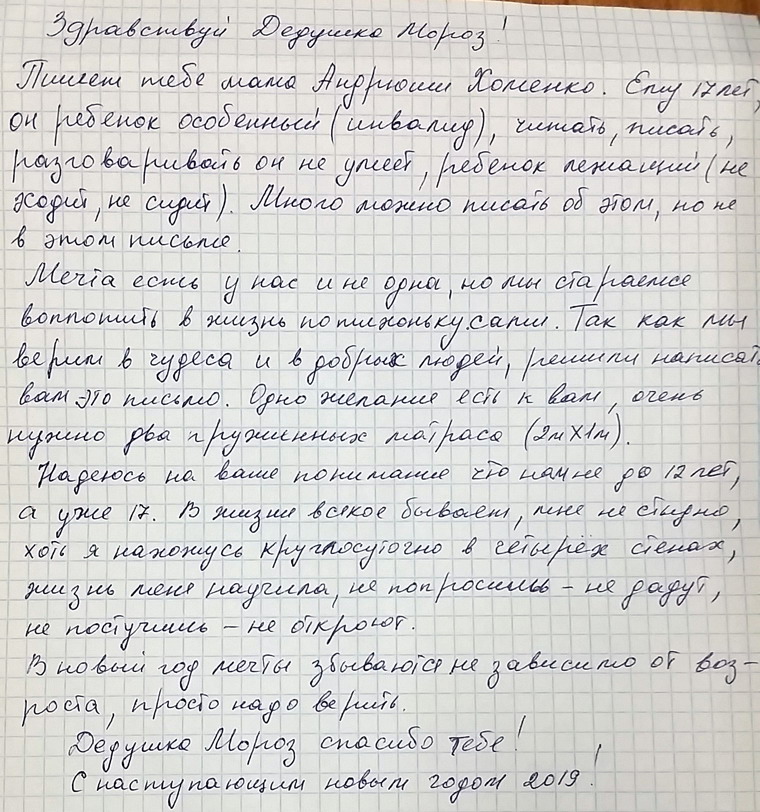 Здравствуй Дедушка Мороз!
Пишет тебе мама Андрюши Хоменко. Ему 17 лет,
он ребенок особенный (инвалид), читать, писать,
разговаривать он не умеет, ребенок лежащий (не
ходит, не сидит). Много можно писать об этом, но не
в этом письме.
Мечта есть у нас и не одна, но мы стараемся
воплотить в жизнь потихоньку сами. Так как мы
верим в чудеса и в добрых людей, решили написать
вам это письмо. Одно желание есть к вам, очень
нужно два пружинных матраса (2м X 1м).
Надеюсь на ваше понимание что нам не до 12 лет,
а уже 17. В жизни всякое бывает, мне не стыдно,
хоть я нахожусь круглосуточно в четырёх стенах,
жизнь меня научила, не попросишь - не дадут,
не постучишь - не откроют.
В новый год мечты збываются не зависимо от воз-
роста, просто надо верить.
Дедушка Мороз спасибо тебе!
С наступающим новым годом 2019!